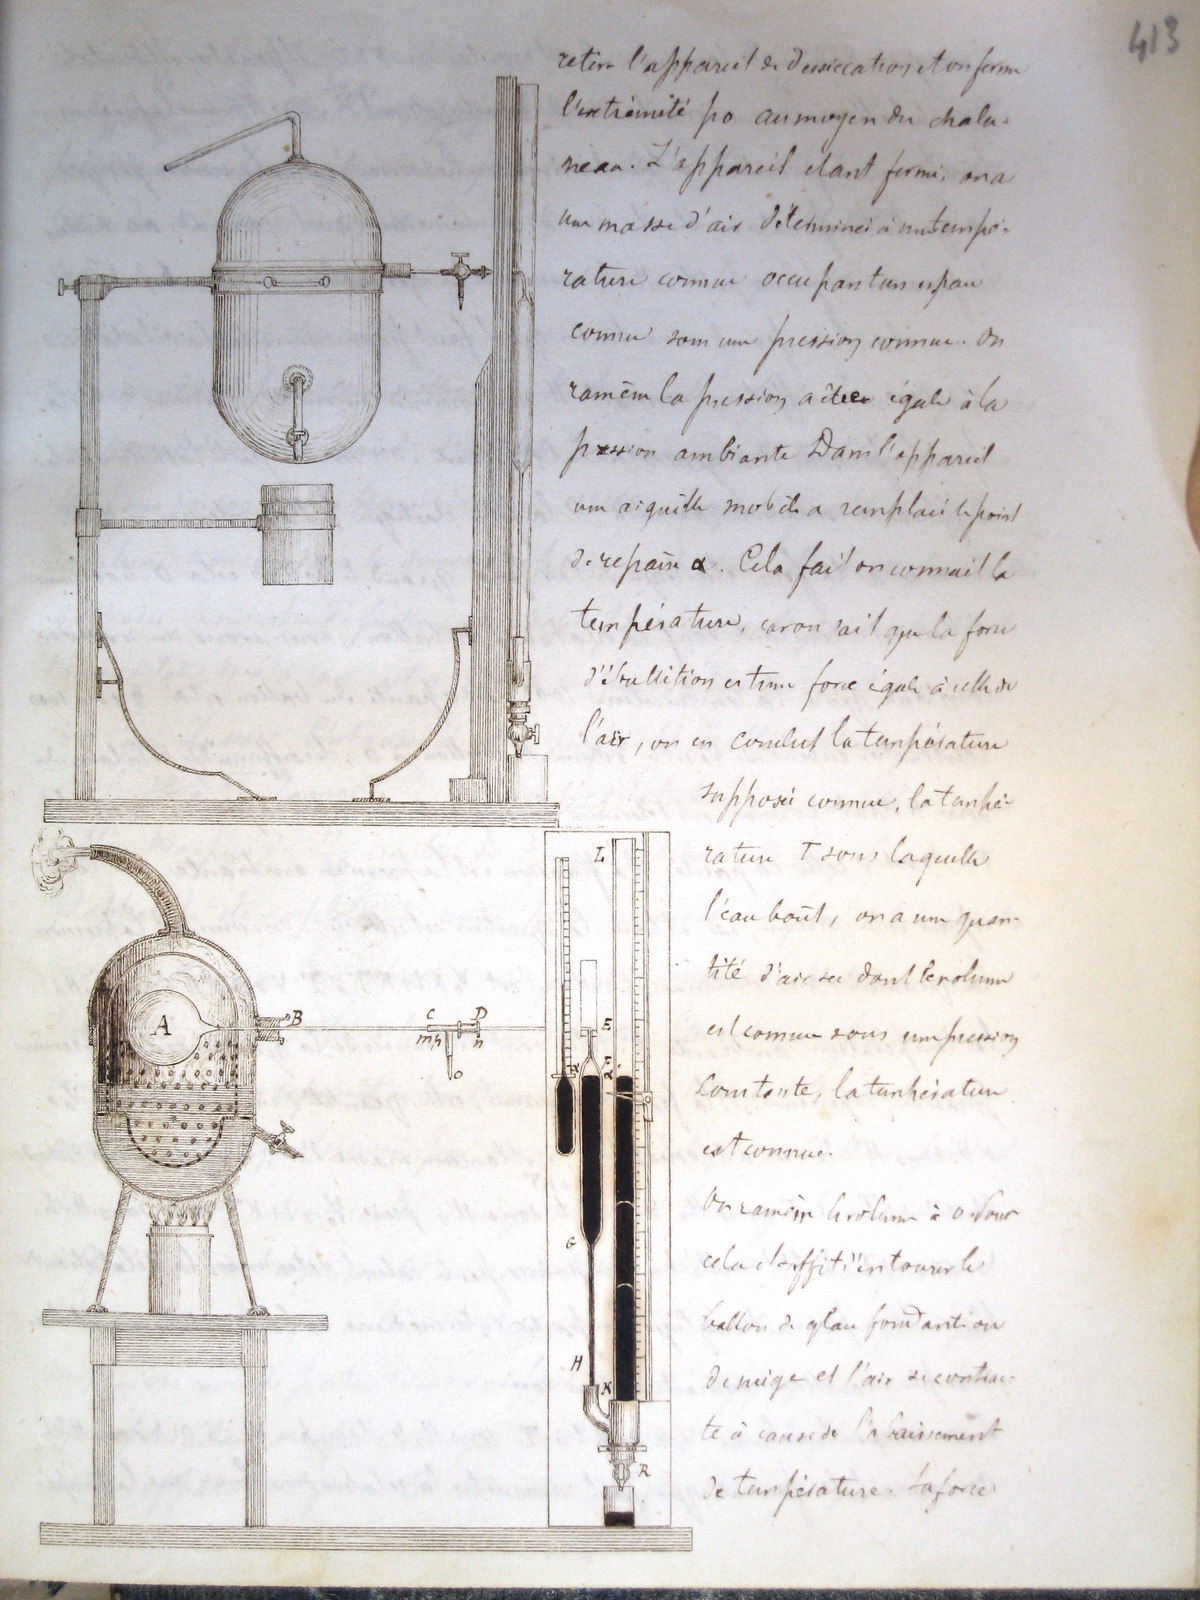 413
retire l'appareil de dessiccation et on ferme
l'extrémité po au moyen du chalu-
neau. L'appareil étant fermé, on a
une masse d'air déterminée à une tempé-
rature connue occupant un espace
connu sous une pression connue. On
ramène la pression à être égale à la
pression ambiante Dans l'appareil
une aiguille mobile a remplacé le point
de repaire α. Cela fait on connait la
température, car on sait que la force
d'ébullition est une force égale à celle de
l'air, on en conclut la température
supposée connue, la tempé-
rature T sous laquelle
l'eau bout, on a une quan-
tité d'air sec dont le volume
est connu sous une pression
constante, la température
est connue.
On ramène le volume à 0. Pour
cela il suffit d'entourer le
ballon de glace fondant ou
de neige et l'air se contrac-
te à cause de l'abaissement
de température. La force
L
A
B
C
D
m p
n
o
E
F
α
G
H
K
R